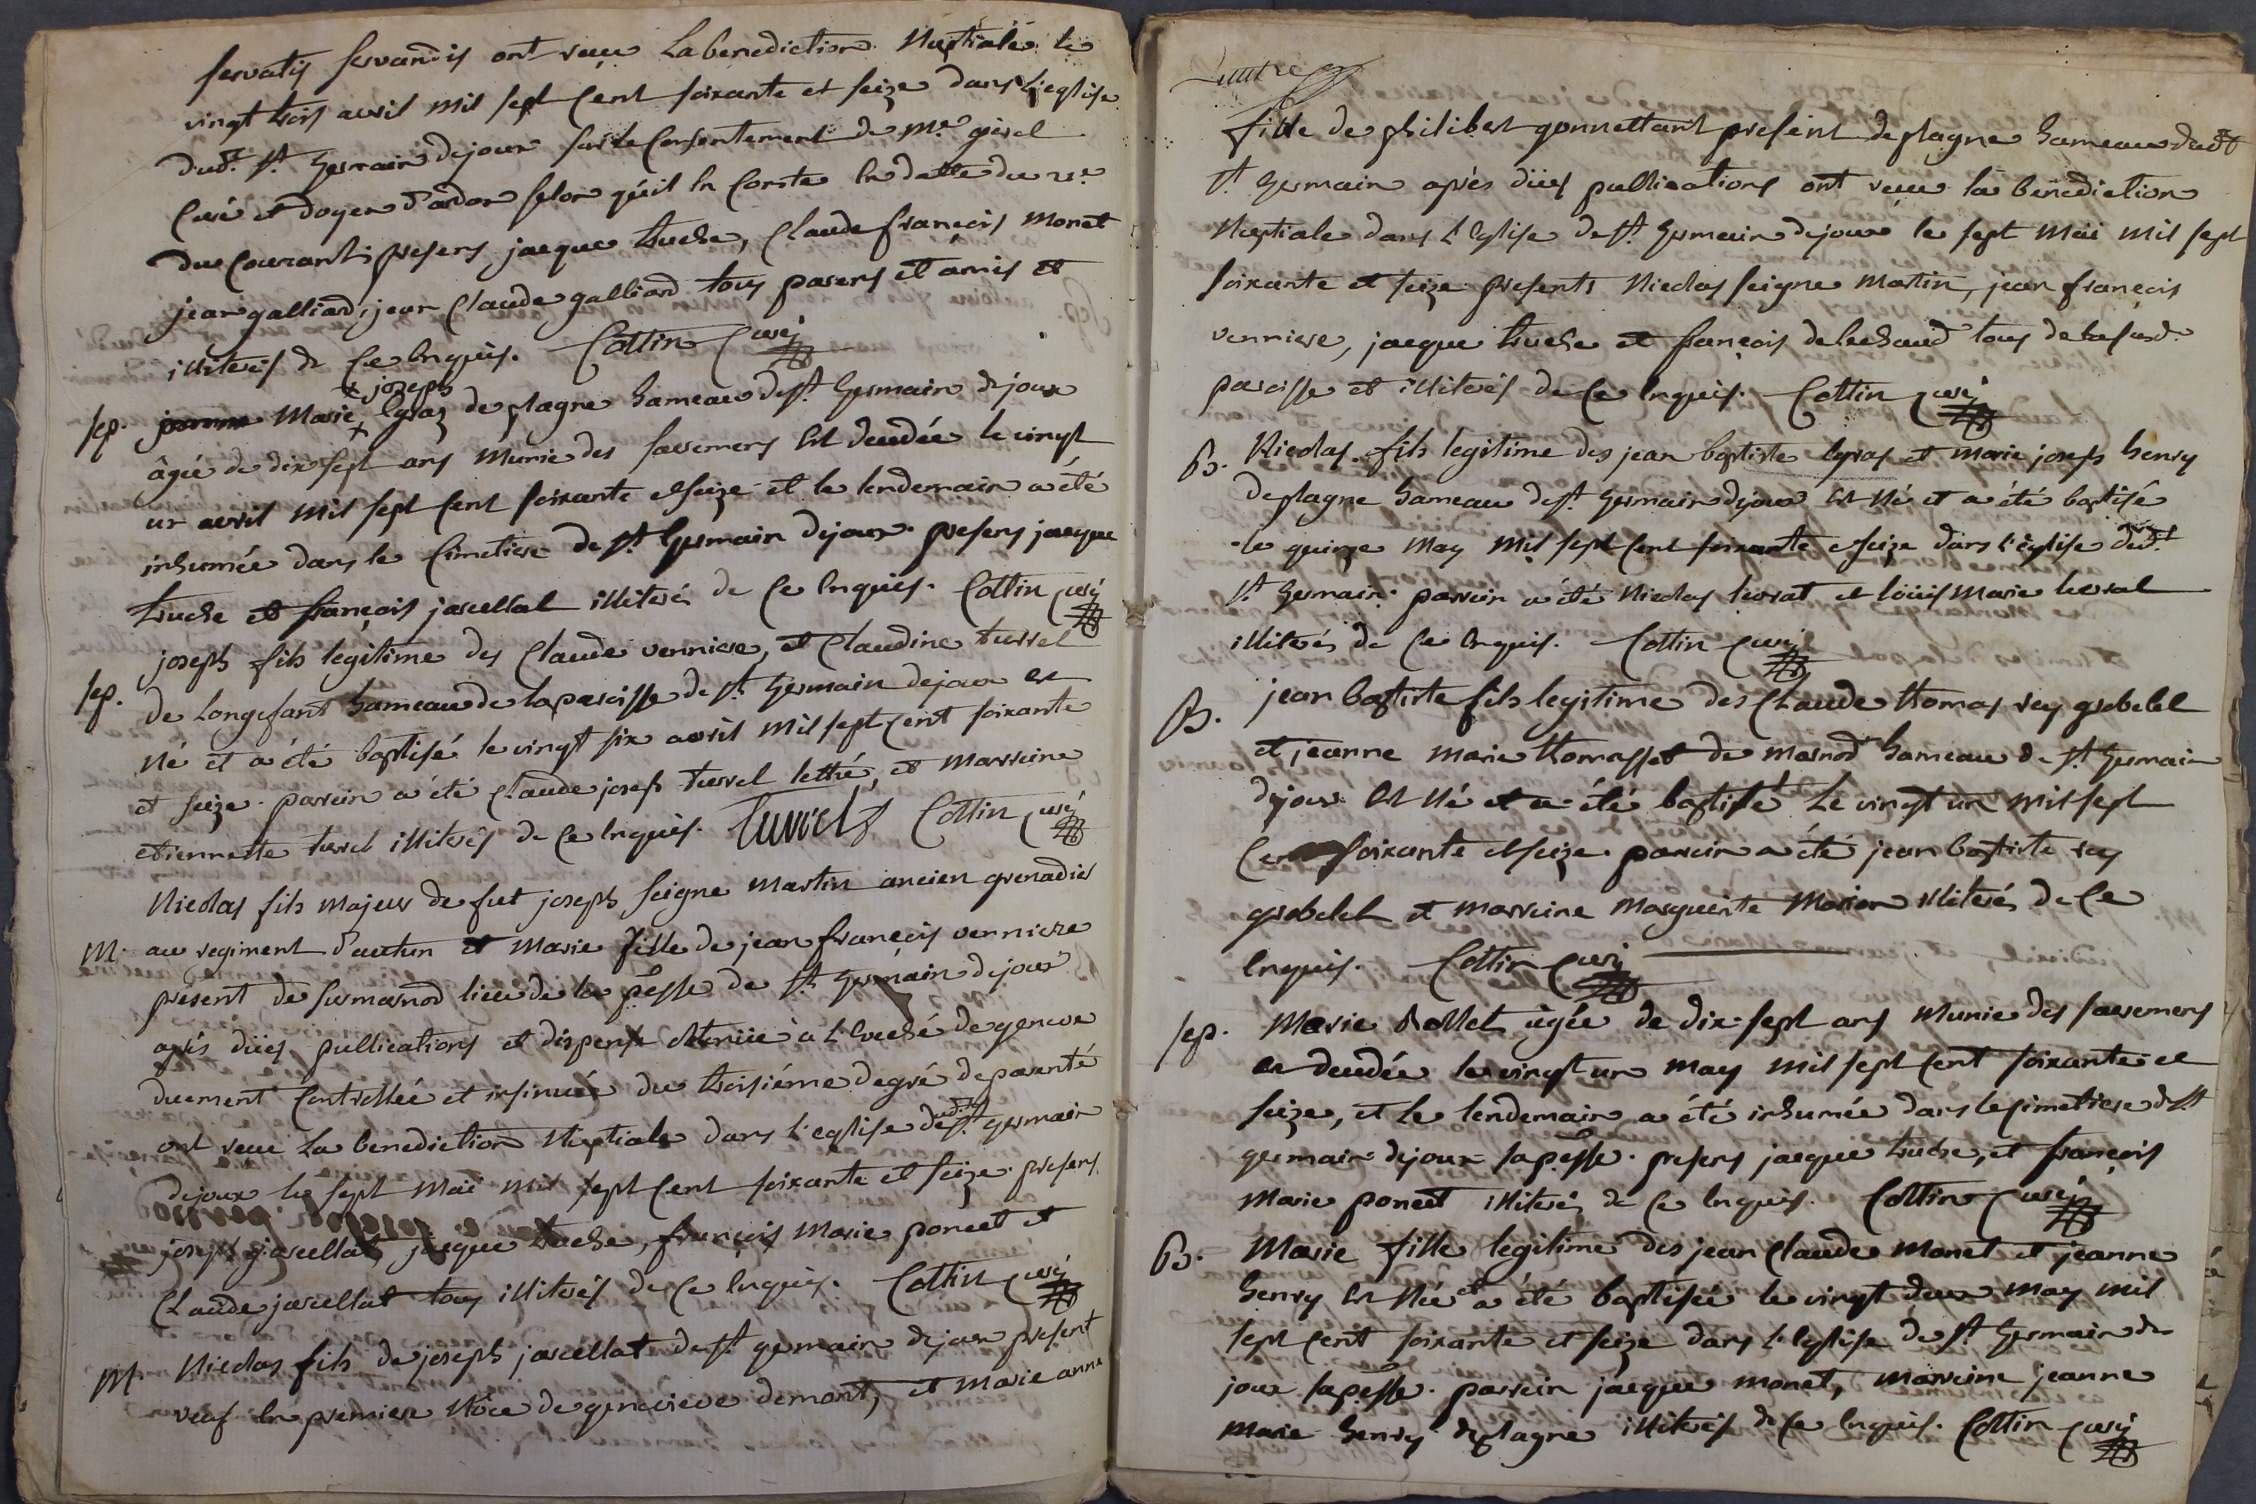 servatis servandis ont reçu La benediction Nuptiale le
vingt trois avril mil sept Cent soixante et seize dans L'eglise
dud.t S.t Germain dejoux sur le Consentement de M.re girel
Curé et doyen d'ardon selon qu'il En Conste En datte du
du Courant. presens jacque tuche, Claude françois monet
jean galliard, jean Claude galliard tous parens et amis et
illiterés de Ce Enquis. Cottin Curé
sep. Marie joseph Egraz de plagne hameau de S.t Germain dejoux
âgée de dix sept ans Munie des sacremens Est decedée le vingt
un avril mil sept Cent soixante et seize et le lendemain a été
inhumée dans le Cimetiere de S.t Germain dejoux. presens jacque
tuche et françois jarcellat illiterés de Ce Enquis. Cottin Curé
joseph fils legitime des Claude verniere, et Claudine turrel
sep. de Longefant hameau de la paroisse de S.t Germain dejoux est
Né et a été baptisé le vingt six avril mil sept Cent soixante
et seize. parrein a été Claude joseph turrel lettré, et marreine
etiennette turrel illiterés de Ce Enquis. turrel Cottin Curé
Nicolas fils majeur de fut joseph seigne martin ancien grenadier
M. au regiment d'autun et Marie fille de jean françois verniere
present de surmarnod lieu de la p.esse de S.t Germain dejoux
après dües publications et dispense obtenüe à l'Eveché de geneve
duement Controllée et insinuée du troisiéme degré de parenté
ont reçu La benediction Nuptiale dans l'eglise dudit S.t germain
dejoux le sept Mai mil sept Cent soixante et seize. presens
joseph jarcellat, jacque tuche, françois Marie poncet et
Claude jarcellat tous illiterés de Ce Enquis. Cottin Curé
M. Nicolas fils de joseph jarcellat de S.t germain dejoux present
veuf En premiere Nôce de genevieve demont, et Marie anne
fille de philibert gonnettant present de plagne hameau dud.t
S.t Germain après dües publications ont reçu la benediction
Nuptiale dans L'Eglise de S.t Germain dejoux le sept Mai mil sept
soixante et seize presents Nicolas seigne Martin, jean françois
verniere, jacque tuche et françois de lachaud tous de la susd.
paroisse et illiterés de Ce Enquis. Cottin Curé
B. Nicolas fils legitime des jean baptiste Egraz et marie joseph henry
de plagne hameau de S.t Germain dejoux Est Né et a été baptisé
le quinze May Mil sept Cent soixante et seize dans l'église dud.t
S.t Germain. parrein a été Nicolas et Loüis Marie
illiterés de Ce Enquis. Cottin Curé
B. jean baptiste fils legitime des Claude thomas rey grobelet
et jeanne marie thomasset de marnod hameau de S.t Germain
dejoux Est Né et a été baptisé Le vingt un mil sept
Cent soixante et seize. parrein a été jean baptiste rey
grobelet et marreine Marguerite Marion illiterés de Ce
Enquis. Cottin Curé
sep. Marie âgée de dix sept ans Munie des sacremens
est decedée le vingt un may mil sept Cent soixante et
seize, et le lendemain a été inhumée dans le Cimetiere de S.t
germain dejoux sa p.esse. presens jacque tuche, et françois
Marie poncet illiterés de Ce Enquis. Cottin Curé
B. Marie fille legitime des jean Claude Monet et jeanne
henry Est Née et a été baptisée le vingt deux may mil
sept Cent soixante et seize dans L'Eglise de S.t Germain de
joux sa p.esse. parrein jacque monet, marreine jeanne
marie henry de plagne illiterés de Ce Enquis. Cottin Curé